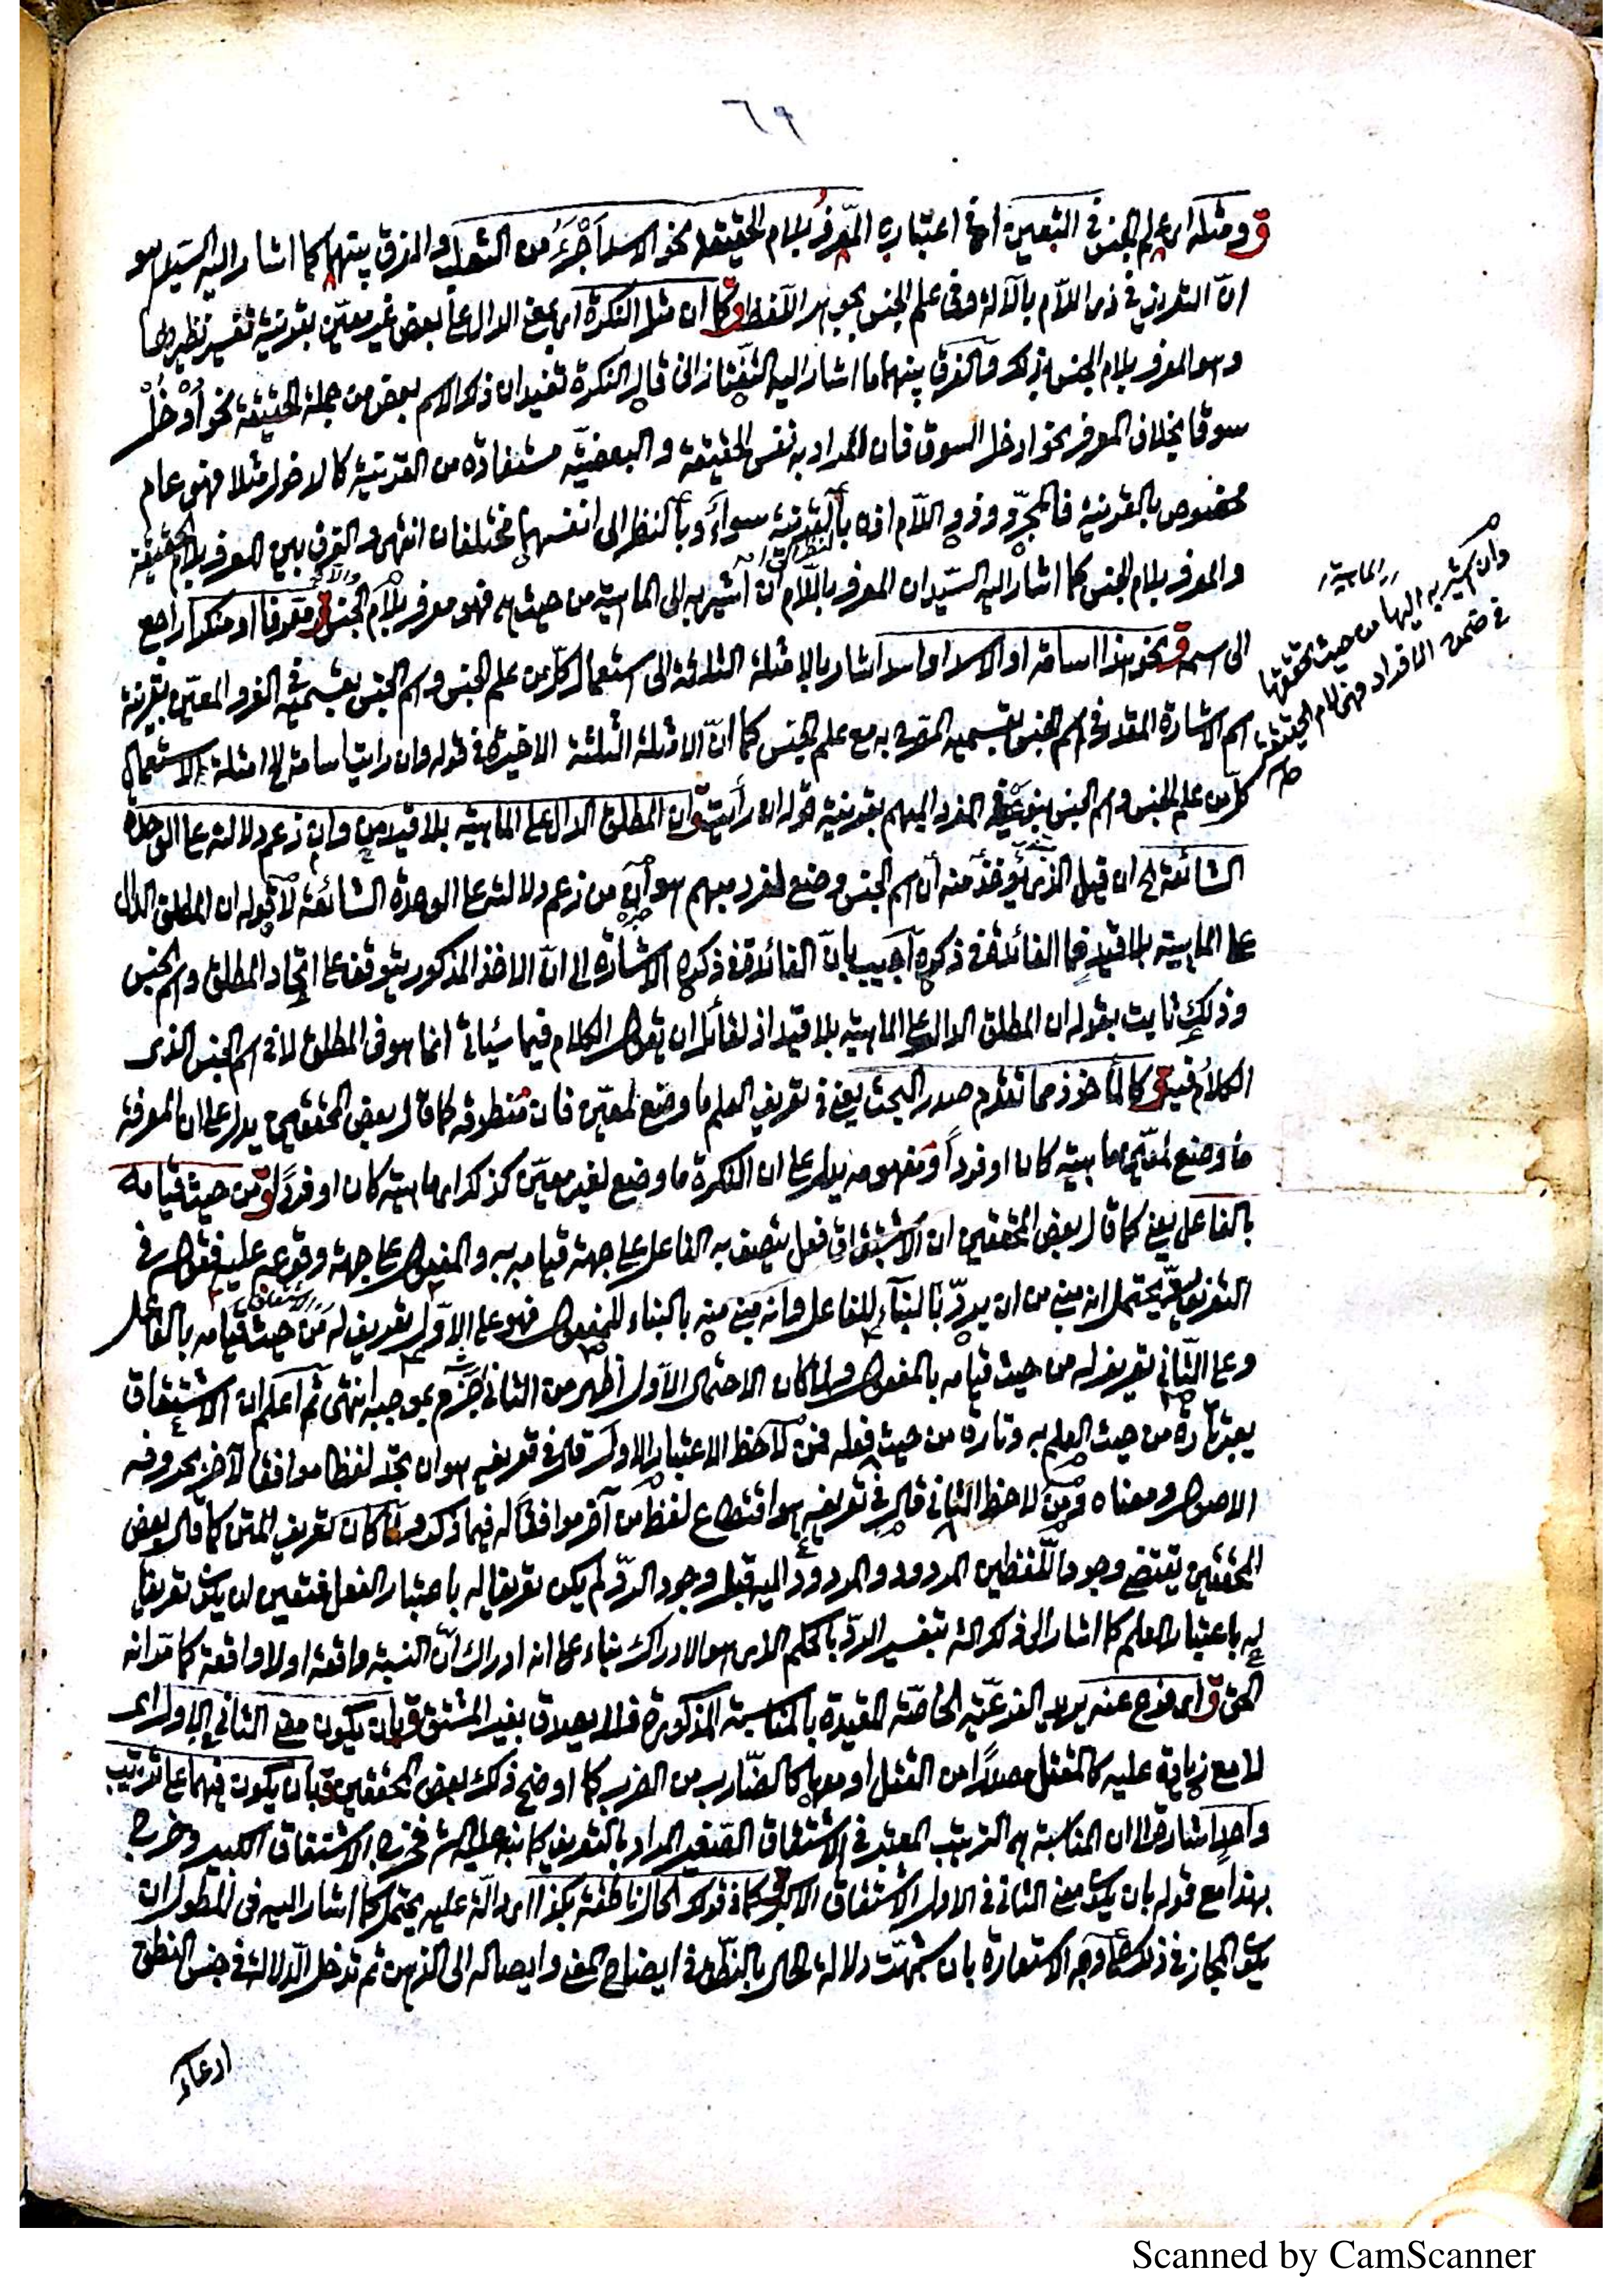 ٦٩
ق ومثله اى علم الجنس فى التعيين اى فى اعتباره المعرف بلام الحقيقة نحو الاسد اجرء من الثعلب والفرق بينهما كما اشار اليه السيد هو
ان التعريف فى ذى اللام بالآلة وفى علم الجنس بجوهر اللفظ ق كما ان مثل النكرة اى بمعنى الدال على بعض غير معين بقرينة تفسير نظيرها
وهو المعرف بلام الجنس بذلك والفرق بينهما ما اشار اليه التفتازانى قال النكرة تفيد ان ذكر الاسم بعض من جملة الحقيقة نحو ادخل
سوقا بخلاف المعرف نحو ادخل السوق فان المراد به نفس الحقيقة والبعضية مستفادة من القرينة كالادخول مثلا فهو عام
مخصوص بالقرينة فالمجرد وذو اللام اذن بالقرينة سواء وبالنظر الى انفسهما مختلفان انتهى والفرق بين المعرف بلام الحقيقة
والمعرف بلام الجنس كما اشار اليه السيد ان المعرف باللام ان اشير به الى الماهية من حيث هى فهو معرف بلام الجنس ق معرفا او منكرا راجع
الى اسم ق نحو هذا اسامة او الاسد او اسد اشار بالامثلة الثلاثة الى استعمال كل من علم الجنس واسم الجنس بقسميه فى الفرد المعين بقرينة
اسم الاشارة المقدر فى اسم الجنس بقسميه المصرح به مع علم الجنس كما ان الامثلة الثلثة الاخيرة فى قوله وان رايت اسامة الخ امثلة الاستعمال
كل من علم الجنس واسم الجنس بنوعيه فى الفرد المبهم بقرينة قوله ان رأيت ق وان المطلق الدال على الماهية بلا قيد من وان زعم دلالته على الوحدة
الشائعة الخ ان قيل الذى يؤخذ منه ان اسم الجنس وضع لفرد مبهم هو ان من زعم دلالته على الوحدة الشائعة لا قوله ان المطلق الدال
على الماهية بلا قيد فما الفائدة فى ذكره اجيب بان الفائدة فى ذكره الاشارة الى ان الاخذ المذكور يتوقف على اتحاد المطلق واسم الجنس
وذلك ثابت بقوله ان المطلق الدال على الماهية بلا قيد اذ لقائل ان يقول الكلام فيما سيأتى انما هو فى المطلق لا فى اسم الجنس الذى
الكلام فيه ق كالمأخوذ مما تقدم صدر البحث يعنى فى تعريف العلم ما وضع لمعين فان منطوقه كما قال بعض المحققين يدل على ان المعرفة
ما وضع لمعين ماهية كان او فردا ومفهومه يدل على ان النكرة ما وضع لغير معين كذلك اى ماهية كان او فردا ق من حيث قيامه
بالفاعل يعنى كما قال بعض المحققين ان الاشتقاق فعل يتصف به الفاعل على جهة قيامه به والمفعول على جهة وقوعه عليه فقوله فى
التعريف يحتمل انه مبنى من ان يرد بالبناء للفاعل وانه مبنى منه بالبناء للمفعول فهو على الاول تعريف له من حيث قيامه بالفاعل
وعلى الثانى تعريف له من حيث قيامه بالمفعول ولما كان الاحتمال الاول اظهر من الثانى جزم بموجبه انتهى ثم اعلم ان الاشتقاق
يعتبر تارة من حيث العلم به وتارة من حيث فعله فمن لاحظ الاعتبار الاول قال فى تعريفه هو ان تجد لفظا موافقا لآخر بحروفه
الاصول ومعناه ومن لاحظ الثانى قال فى تعريفه هو اقتطاع لفظ من آخر موافقا له فيما ذكر ولما كان تعريف المتن كما قال بعض
المحققين يقتضى وجود اللفظين المردود والمردود اليه قبل وجود الرد لم يكن تعريفا له باعتبار الفعل فتعين ان يكون تعريفا
له باعتبار العلم كما اشار الى ذلك الشـ بتفسير الرد بالحكم الذى هو الادراك بناء على انه ادراك ان النسبة واقعة او لا واقعة كما مر انه
الحق ق اى فرع عنه يريد الفرعية الخاصة المقيدة بالمناسبة المذكورة فلا يصدق بغير المشتق ق بان يكون معنى الثانى فى الاول اى
لا مع زيادة عليه كالمقتل مصدرا من القتل او معها كالضارب من الضرب كما اوضح ذلك بعض المحققين ق بان يكون فيهما على ترتيب
واحد اشارة الى ان المناسبة هى الترتيب المعتبر فى الاشتقاق الصغير المراد بالتعريف كما نبه عليه الشـ فخرج الاشتقاق الكبير وخرج
بهذا مع قوله بان يكون معنى الثانى فى الاول الاشتقاق الاكبر ق كما فى قولك الحال ناطقة بكذا اى دالة عليه يحتمل كما اشار اليه فى المطول ان
يكون المجاز فى ذلك على وجه الاستعارة بان شبهت دلالة الحال بالنطق فى ايضاح المعنى وايصاله الى الذهن ثم تدخل الدلالة فى جنس النطق
ادعاء
الماهية
وان اشير به اليها من حيث تحققها
فى ضمن الافراد فهى لام الحقيقة